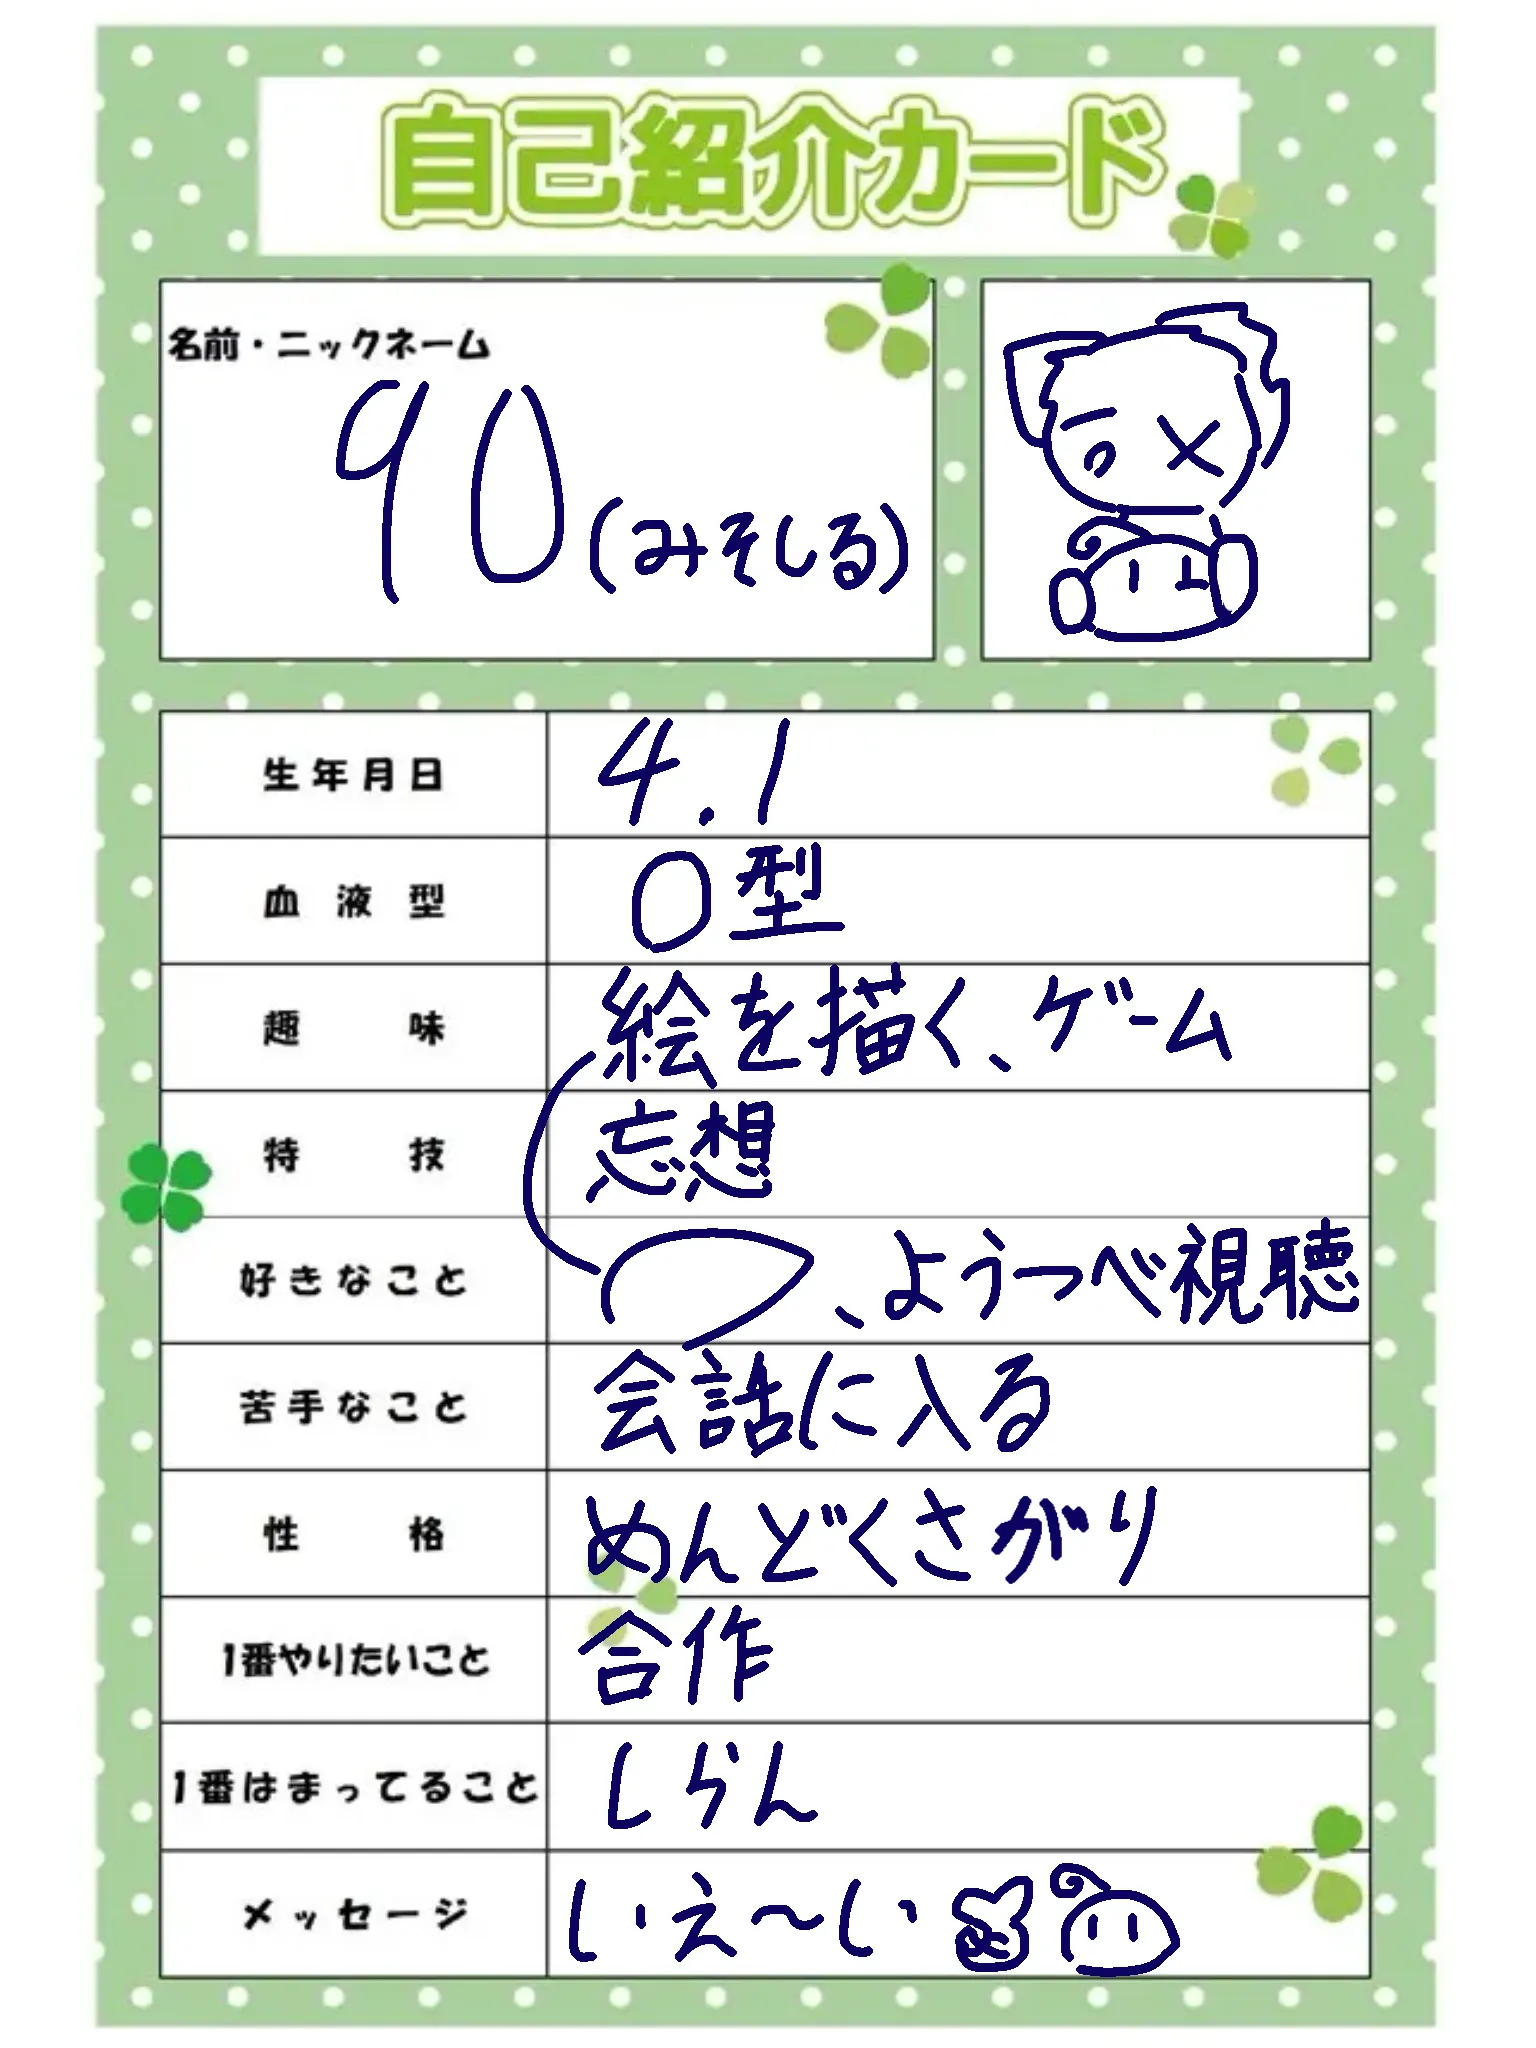 自己紹介カード
名前・ニックネーム
90(みそしる)
生年月日 4.1
血液型 O型
趣味 絵を描く、ゲーム
特技 忘想
好きなこと 、ようつべ視聴
苦手なこと 会話に入る
性格 めんどくさがり
1番やりたいこと 合作
1番はまってること しらん
メッセージ いえ〜い